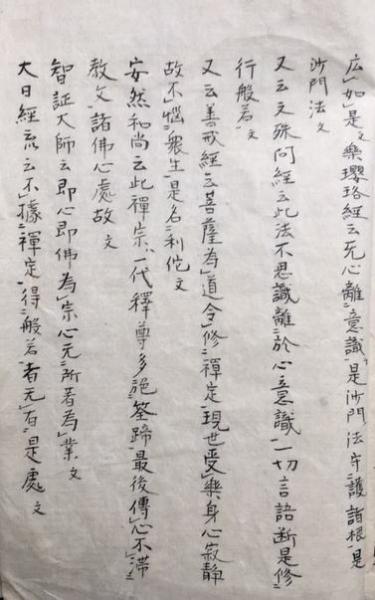 広如是文樂瓔珞經云无心離意識是沙門法守護諸根是
沙門法文
又云文殊問經云此法不思議離於心意識一切言語断是修
行般若文
又云善戒經云菩薩為道令修禪定現世受樂身心寂静
故不惱衆生是名利他文
安然和尚云此禪宗一代釋尊多絶筌蹄最後傳心不滞
教文諸佛心處故文
智証大師云即心即佛為宗心无所著為業文
大日經疏云不據禪定得般若者无有是處文